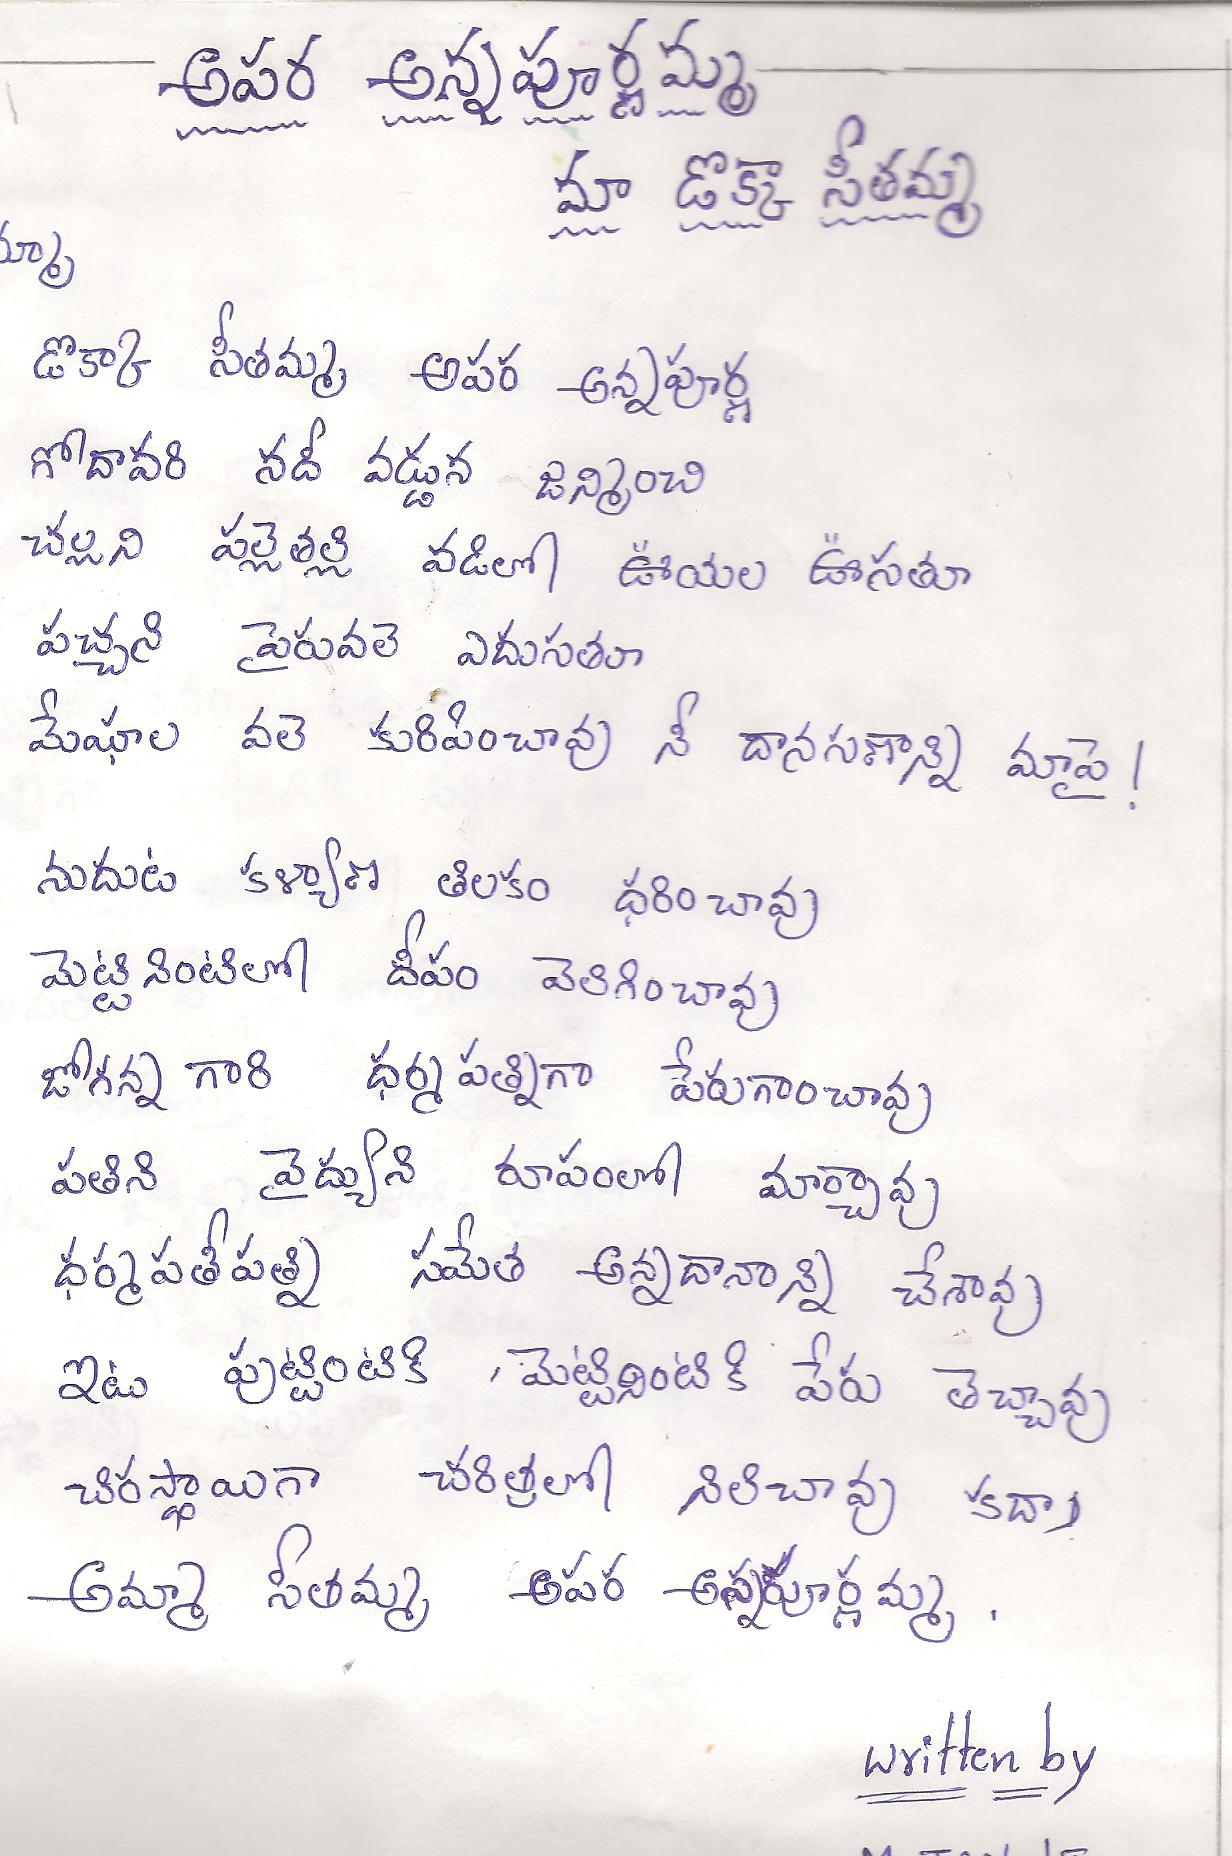 అపర అన్నపూర్ణమ్మ
మా డొక్కా సీతమ్మ
డొక్కా సీతమ్మ అపర అన్నపూర్ణ
గోదావరి నదీ వడ్డున జన్మించి
చల్లని పల్లెతల్లి వడిలో ఊయల ఊసతూ
పచ్చని పైరువలె ఎదుసతూ
మేఘాల వలె కురిపించావు నీ దానసణాన్ని మాపై!
నుదుట కళ్యాణ తిలకం ధరించావు
మెట్టినింటిలో దీపం వెలిగించావు
జోగన్న గారి ధర్మపత్నిగా పేరుగాంచావు
పతిని వైద్యుని రూపంలో మార్చావు
ధర్మపతీపత్ని సమేత అన్నదానాన్ని చేశావు
ఇటు పుట్టింటికీ, మెట్టినింటికీ పేరు తెచ్చావు
చిరస్థాయిగా చరిత్రలో నిలిచావు కదా!
అమ్మా సీతమ్మ అపర అన్నపూర్ణమ్మ.
written by